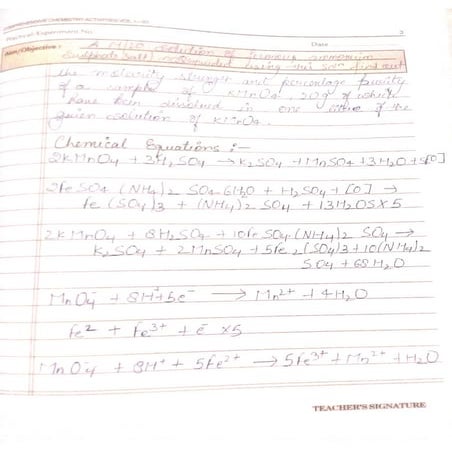 COMPREHENSIVE CHEMISTRY ACTIVITIES VOL.
Practical/Experiment No. 3
Date
Aim/Objective :- A M/20 solution of ferrous ammonium
Sulphate Salt) using this soln find out
the molarity strength and percentage purity
of a sample of KMnO4. of which
have been dissolved in one litre of the
given solution of KMnO4.
Chemical Equations :-
2KMnO4 + 3H2SO4 → K2SO4 + MnSO4 + 3H2O + 5[O]
2FeSO4 (NH4)2 SO4 6H2O + H2SO4 + [O] →
Fe (SO4)3 + (NH4)2 SO4 + 13H2O]X5
2KMnO4 + 8H2SO4 + 10Fe SO4 (NH4)2 SO4 →
K2SO4 + 2MnSO4 + 5Fe2(SO4)3 + 10(NH4)2
SO4 + 68H2O
MnO4- + 8H+ + 5e- → Mn2+ + 4H2O
Fe2 + Fe3+ + e- x5
MnO4- + 8H+ + 5Fe2+ → 5Fe3+ + Mn2+ + H2O
TEACHER'S SIGNATURE